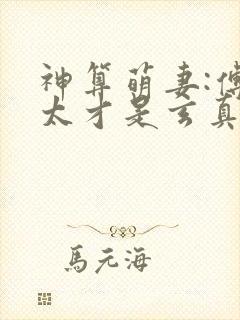 神算萌妻:傅
太才是玄真
馬元海